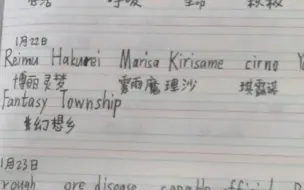 1月22日
Reimu Hakurei Marisa Kirisame cirno
博丽灵梦 雾雨魔理沙 琪露诺
Fantasy Township
幻想乡
1月23日
rough ore disease